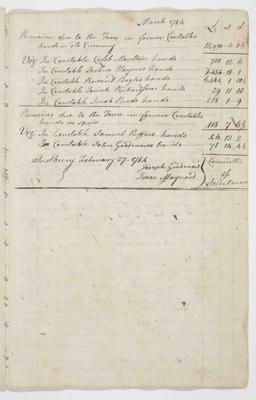 March 1784
£ s d
Remains due to the Town in former Constables
hands in old Currency
Viz: In Constable Caleb Moultons hands 701 12 6
In Constable Joshua Haynes hands
In Constable hands
In Constable Josiah Richardsons hands 29 11 10
In Constable Jacob Reads hands 218 1 9
Remains due to the Town in former Constables
hands in specie 118 7
Viz: In Constable Samuel Puffers hands
In Constable John Goodenows hands
Sudbury February 27. 1784
Joseph Goodenow
Isaac Maynard
Committee
of
Selectmen